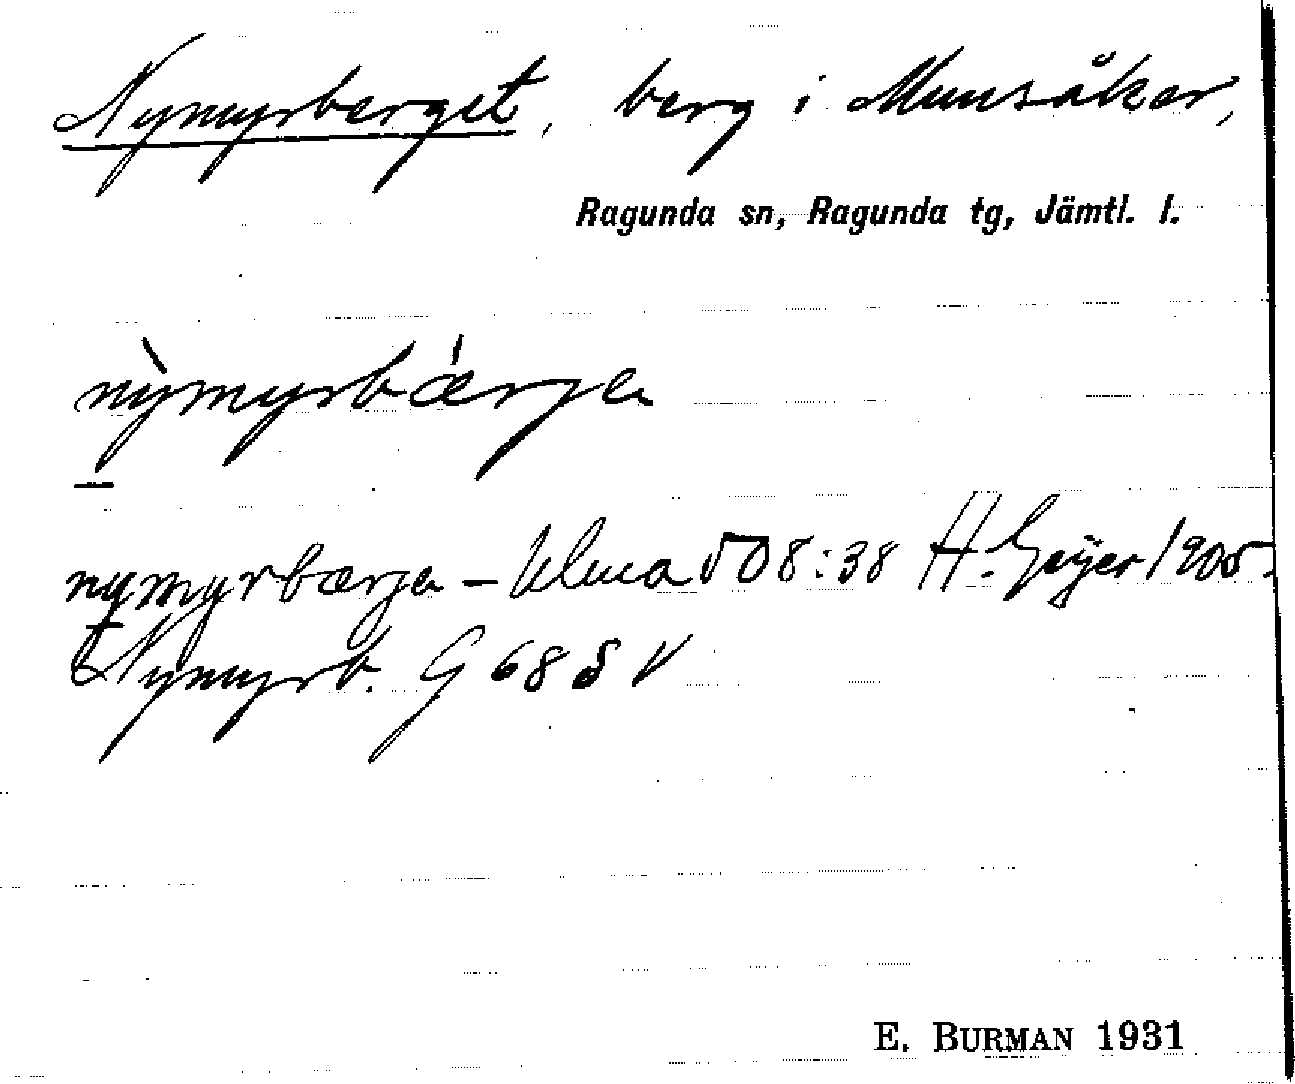 Nymyrberget, berg i Munsåker,
Ragunda sn, Ragunda tg, Jämtl. l.
nỳmyrbǽrjɛ
nymyrbærja – Ulma 508:38 H. Geijer 1905.
Nymyrb. G 68 S V
E. BURMAN 1931